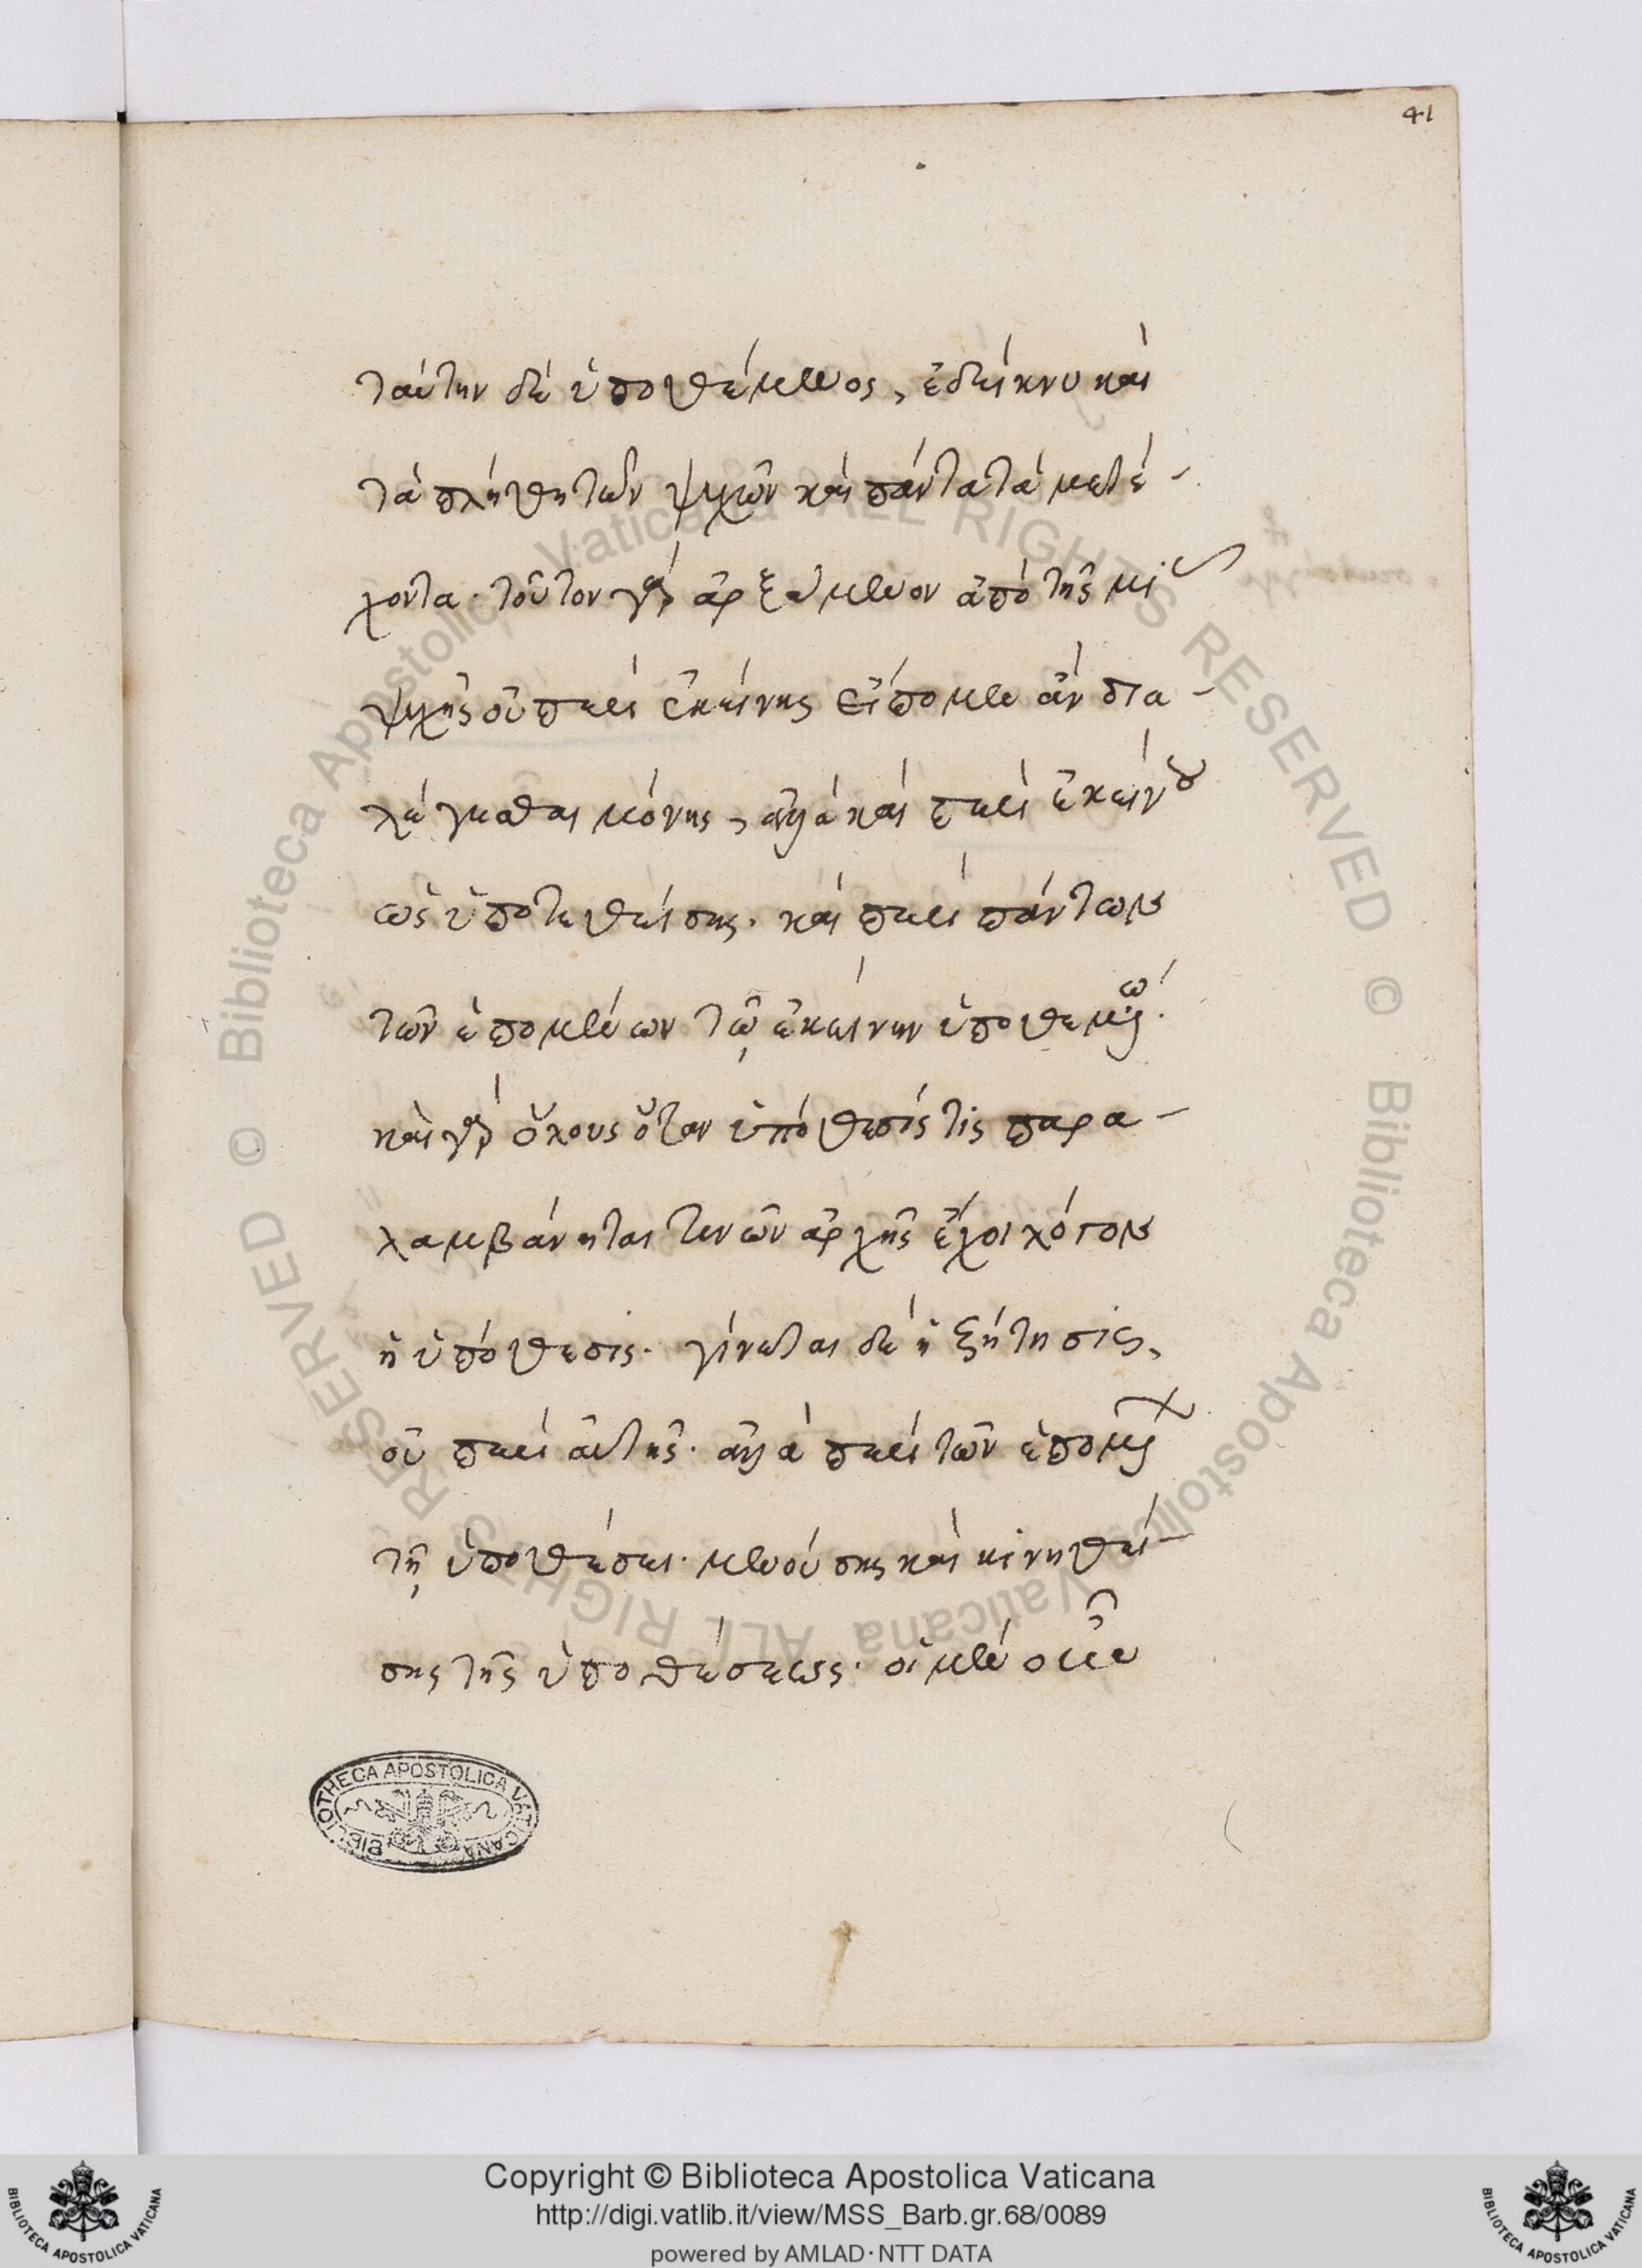 41
ταύτην δὲ ὑποθέμενος, ἐδείκνυ καὶ
τὰ πλήθη τῶν ψυχῶν καὶ πάντα τὰ μετέ-
χοντα· τοῦτον γὰρ ἀρξάμενον ἀπὸ τῆς μιᾶς
ψυχῆς οὐ περὶ ἐκείνης εἴπομεν ἂν δια-
λέγεσθαι μόνης, ἀλλὰ καὶ περὶ ἐκείνου
ὡς ὑποτεθείσης· καὶ περὶ πάντων
τῶν ἑπομένων τῷ ἐκείνην ὑποθεμένῳ·
καὶ γὰρ ὅλους ὅταν ὑπόθεσίς τις παρα-
λαμβάνηται τινῶν ἀρχῆς ἔχοι λόγον
ἡ ὑπόθεσις· γίνεται δὲ ἡ ζήτησις,
οὐ περὶ αὐτῆς· ἀλλὰ περὶ τῶν ἑπομένων
τῇ ὑποθέσει· μενούσης καὶ κινηθεί-
σης τῆς ὑποθέσεως· οἱ μὲν οὖν
BIBLIOTHECA APOSTOLICA VATICANA
© Biblioteca Apostolica Vaticana ALL RIGHTS RESERVED © Biblioteca Apostolica Vaticana ALL RIGHTS RESERVED
Copyright © Biblioteca Apostolica Vaticana
http://digi.vatlib.it/view/MSS_Barb.gr.68/0089
powered by AMLAD·NTT DATA
BIBLIOTECA APOSTOLICA VATICANA
BIBLIOTECA APOSTOLICA VATICANA